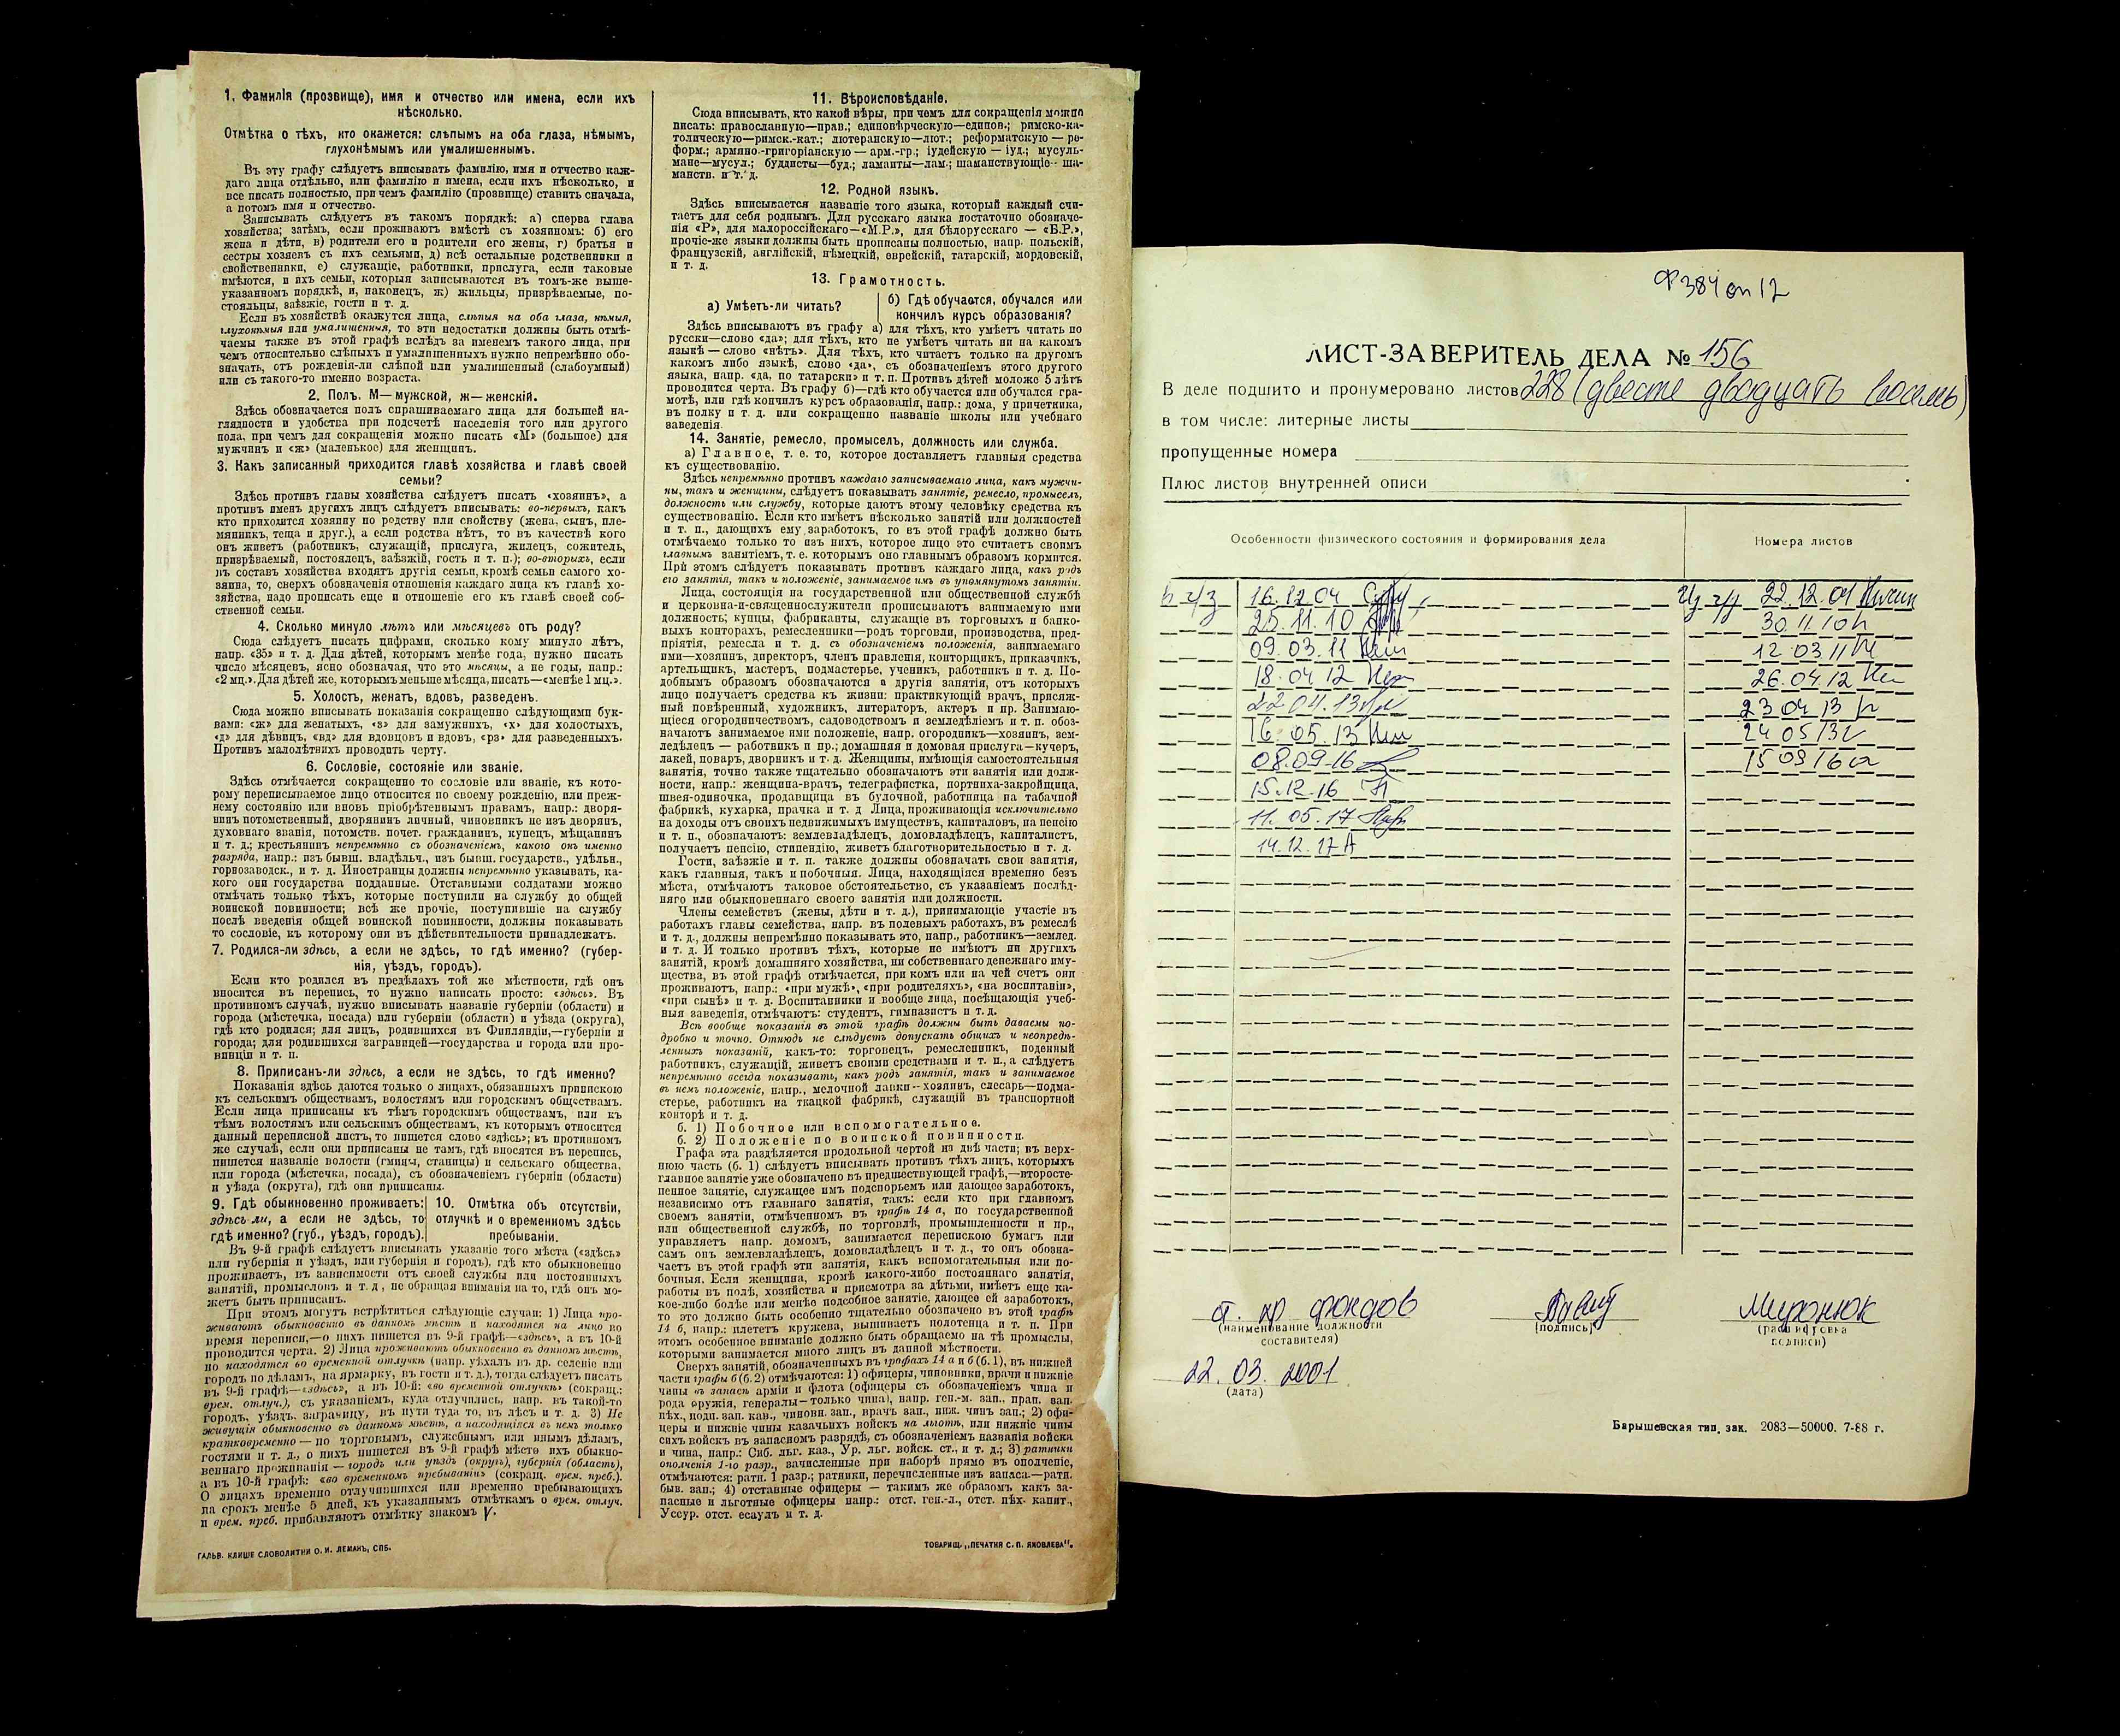 1. Фамилія (прозвище), имя и отчество или имена, если ихъ
нѣсколько.
Отмѣтка о тѣхъ, кто окажется: слѣпымъ на оба глаза, нѣмымъ,
глухонѣмымъ или умалишеннымъ.
Въ эту графу слѣдуетъ вписывать фамилію, имя и отчество каж-
даго лица отдѣльно, или фамилію и имена, если ихъ нѣсколько, и
все писать полностью, при чемъ фамилію (прозвище) ставить сначала,
а потомъ имя и отчество.
Записывать слѣдуетъ въ такомъ порядкѣ: а) сперва глава
хозяйства; затѣмъ, если проживаютъ вмѣстѣ съ хозяиномъ: б) его
жена и дѣти, в) родители его и родители его жены, г) братья и
сестры хозяевъ съ ихъ семьями, д) всѣ остальные родственники и
свойственники, е) служащіе, работники, прислуга, если таковые
имѣются, и ихъ семьи, которыя записываются въ томъ-же выше-
указанномъ порядкѣ, и, наконецъ, ж) жильцы, призрѣваемые, по-
стояльцы, заѣзжіе, гости и т. д.
Если въ хозяйствѣ окажутся лица, слѣпыя на оба глаза, нѣмыя,
глухонѣмыя или умалишенныя, то эти недостатки должны быть отмѣ-
чаемы также въ этой графѣ вслѣдъ за именемъ такого лица, при
чемъ относительно слѣпыхъ и умалишенныхъ нужно непремѣнно обо-
значать, отъ рожденія-ли слѣпой или умалишенный (слабоумный)
или съ такого-то именно возраста.
2. Полъ. М—мужской, ж—женскій.
Здѣсь обозначается полъ спрашиваемаго лица для большей на-
глядности и удобства при подсчетѣ населенія того или другого
пола, при чемъ для сокращенія можно писать «М» (большое) для
мужчинъ и «ж» (маленькое) для женщинъ.
3. Какъ записанный приходится главѣ хозяйства и главѣ своей
семьи?
Здѣсь противъ главы хозяйства слѣдуетъ писать «хозяинъ», а
противъ именъ другихъ лицъ слѣдуетъ вписывать: во-первыхъ, какъ
кто приходится хозяину по родству или свойству (жена, сынъ, пле-
мянникъ, теща и друг.), а если родства нѣтъ, то въ качествѣ кого
онъ живетъ (работникъ, служащій, прислуга, жилецъ, сожитель,
призрѣваемый, постоялецъ, заѣзжій, гость и т. п.); во-вторыхъ, если
въ составъ хозяйства входятъ другія семьи, кромѣ семьи самого хо-
зяина, то, сверхъ обозначенія отношенія каждаго лица къ главѣ хо-
зяйства, надо прописать еще и отношеніе его къ главѣ своей соб-
ственной семьи.
4. Сколько минуло лѣтъ или мѣсяцевъ отъ роду?
Сюда слѣдуетъ писать цифрами, сколько кому минуло лѣтъ,
напр. «35» и т. д. Для дѣтей, которымъ менѣе года, нужно писать
число мѣсяцевъ, ясно обозначая, что это мѣсяцы, а не годы, напр.:
«2 мц.». Для дѣтей же, которымъ меньше мѣсяца, писать—«менѣе 1 мц.».
5. Холостъ, женатъ, вдовъ, разведенъ.
Сюда можно вписывать показанія сокращенно слѣдующими бук-
вами: «ж» для женатыхъ, «з» для замужнихъ, «х» для холостыхъ,
«д» для дѣвицъ, «вд» для вдовцовъ и вдовъ, «рз» для разведенныхъ.
Противъ малолѣтнихъ проводить черту.
6. Сословіе, состояніе или званіе.
Здѣсь отмѣчается сокращенно то сословіе или званіе, къ кото-
рому переписываемое лицо относится по своему рожденію, или преж-
нему состоянію или вновь пріобрѣтеннымъ правамъ, напр.: дворя-
нинъ потомственный, дворянинъ личный, чиновникъ не изъ дворянъ,
духовнаго званія, потомств. почет. гражданинъ, купецъ, мѣщанинъ
и т. д.; крестьянинъ непремѣнно съ обозначеніемъ, какого онъ именно
разряда, напр.: изъ бывш. владѣльч., изъ бывш. государств., удѣльн.,
горнозаводск., и т. д. Иностранцы должны непремѣнно указывать, ка-
кого они государства подданные. Отставными солдатами можно
отмѣчать только тѣхъ, которые поступили на службу до общей
воинской повинности; всѣ же прочіе, поступившіе на службу
послѣ введенія общей воинской повинности, должны показывать
то сословіе, къ которому они въ дѣйствительности принадлежатъ.
7. Родился-ли здѣсь, а если не здѣсь, то гдѣ именно? (губер-
нія, уѣздъ, городъ).
Если кто родился въ предѣлахъ той же мѣстности, гдѣ онъ
вносится въ перепись, то нужно написать просто: «здѣсь». Въ
противномъ случаѣ, нужно вписывать названіе губерніи (области) и
города (мѣстечка, посада) или губерніи (области) и уѣзда (округа),
гдѣ кто родился; для лицъ, родившихся въ Финляндіи,—губерніи и
города; для родившихся заграницей—государства и города или про-
винціи и т. п.
8. Приписанъ-ли здѣсь, а если не здѣсь, то гдѣ именно?
Показанія здѣсь даются только о лицахъ, обязанныхъ припискою
къ сельскимъ обществамъ, волостямъ или городскимъ обществамъ.
Если лица приписаны къ тѣмъ городскимъ обществамъ, или къ
тѣмъ волостямъ или сельскимъ обществамъ, къ которымъ относится
данный переписной листъ, то пишется слово «здѣсь»; въ противномъ
же случаѣ, если они приписаны не тамъ, гдѣ вносятся въ перепись,
пишется названіе волости (гмины, станицы) и сельскаго общества,
или города (мѣстечка, посада), съ обозначеніемъ губерніи (области)
и уѣзда (округа), гдѣ они приписаны.
9. Гдѣ обыкновенно проживаетъ:
здѣсь ли, а если не здѣсь, то
гдѣ именно? (губ., уѣздъ, городъ).
10. Отмѣтка объ отсутствіи,
отлучкѣ и о временномъ здѣсь
пребываніи.
Въ 9-й графѣ слѣдуетъ вписывать указаніе того мѣста («здѣсь»
или губернія и уѣздъ, или губернія и городъ), гдѣ кто обыкновенно
проживаетъ, въ зависимости отъ своей службы или постоянныхъ
занятій, промысловъ и т. д, не обращая вниманія на то, гдѣ онъ мо-
жетъ быть приписанъ.
При этомъ могутъ встрѣтиться слѣдующіе случаи: 1) Лица про-
живаютъ обыкновенно въ данномъ мѣстѣ и находятся на лицо во
время переписи,—о нихъ пишется въ 9-й графѣ—«здѣсь», а въ 10-й
проводится черта. 2) Лица проживаютъ обыкновенно въ данномъ мѣстѣ,
но находятся во временной отлучкѣ (напр. уѣхалъ въ др. селеніе или
городъ по дѣламъ, на ярмарку, въ гости и т. д.), тогда слѣдуетъ писать
въ 9-й графѣ—«здѣсь», а въ 10-й: «во временной отлучкѣ» (сокращ.:
врем. отлуч.), съ указаніемъ, куда отлучились, напр. въ такой-то
городъ, уѣздъ, заграницу, въ пути туда то, въ лѣсъ и т. д. 3) Не
живущія обыкновенно въ данномъ мѣстѣ, а находящіяся въ немъ только
кратковременно — по торговымъ, служебнымъ или инымъ дѣламъ,
гостями и т. д., о нихъ пишется въ 9-й графѣ мѣсто ихъ обыкно-
веннаго проживанія — городъ или уѣздъ (округъ), губернія (область),
а въ 10-й графѣ: «во временномъ пребываніи» (сокращ. врем. преб.).
О лицахъ временно отлучившихся или временно пребывающихъ
на срокъ менѣе 5 дней, къ указаннымъ отмѣткамъ о врем. отлуч.
и врем. преб. прибавляютъ отмѣтку знакомъ V.
ГАЛЬВ. КЛИШЕ СЛОВОЛИТНИ О. И. ЛЕМАНЪ, СПБ.
11. Вѣроисповѣданіе.
Сюда вписывать, кто какой вѣры, при чемъ для сокращенія можно
писать: православную—прав.; единовѣрческую—единов.; римско-ка-
толическую—римск.-кат.; лютеранскую—лют.; реформатскую — ре-
форм.; армяно.-григоріанскую — арм.-гр.; іудейскую — іуд.; мусуль-
мане—мусул.; буддисты—буд.; ламаиты—лам.; шаманствующіе-- ша-
манств. и т. д.
12. Родной языкъ.
Здѣсь вписывается названіе того языка, который каждый счи-
таетъ для себя роднымъ. Для русскаго языка достаточно обозначе-
нія «Р», для малороссійскаго—«М.Р.», для бѣлорусскаго — «Б.Р.»,
прочіе-же языки должны быть прописаны полностью, напр. польскій,
французскій, англійскій, нѣмецкій, еврейскій, татарскій, мордовскій,
и т. д.
13. Грамотность.
а) Умѣетъ-ли читать?
б) Гдѣ обучается, обучался или
кончилъ курсъ образованія?
Здѣсь вписываютъ въ графу а) для тѣхъ, кто умѣетъ читать по
русски—слово «да»; для тѣхъ, кто не умѣетъ читать ни на какомъ
языкѣ — слово «нѣтъ». Для тѣхъ, кто читаетъ только на другомъ
какомъ либо языкѣ, слово «да», съ обозначеніемъ этого другого
языка, напр. «да, по татарски» и т. п. Противъ дѣтей моложе 5 лѣтъ
проводится черта. Въ графу б)—гдѣ кто обучается или обучался гра-
мотѣ, или гдѣ кончилъ курсъ образованія, напр.: дома, у причетника,
въ полку и т. д. или сокращенно названіе школы или учебнаго
заведенія.
14. Занятіе, ремесло, промыселъ, должность или служба.
а) Главное, т. е. то, которое доставляетъ главныя средства
къ существованію.
Здѣсь непремѣнно противъ каждаго записываемаго лица, какъ мужчи-
ны, такъ и женщины, слѣдуетъ показывать занятіе, ремесло, промыселъ,
должность или службу, которые даютъ этому человѣку средства къ
существованію. Если кто имѣетъ нѣсколько занятій или должностей
и т. п., дающихъ ему заработокъ, то въ этой графѣ должно быть
отмѣчаемо только то изъ нихъ, которое лицо это считаетъ своимъ
главнымъ занятіемъ, т. е. которымъ оно главнымъ образомъ кормится.
При этомъ слѣдуетъ показывать противъ каждаго лица, какъ родъ
его занятія, такъ и положеніе, занимаемое имъ въ упомянутомъ занятіи.
Лица, состоящія на государственной или общественной службѣ
и церковно-и-священнослужители прописываютъ занимаемую ими
должность; купцы, фабриканты, служащіе въ торговыхъ и банко-
выхъ конторахъ, ремесленники—родъ торговли, производства, пред-
пріятія, ремесла и т. д. съ обозначеніемъ положенія, занимаемаго
ими—хозяинъ, директоръ, членъ правленія, конторщикъ, приказчикъ,
артельщикъ, мастеръ, подмастерье, ученикъ, работникъ и т. д. По-
добнымъ образомъ обозначаются и другія занятія, отъ которыхъ
лицо получаетъ средства къ жизни: практикующій врачъ, присяж-
ный повѣренный, художникъ, литераторъ, актеръ и пр. Занимаю-
щіеся огородничествомъ, садоводствомъ и земледѣліемъ и т. п. обоз-
начаютъ занимаемое ими положеніе, напр. огородникъ—хозяинъ, зем-
ледѣлецъ — работникъ и пр.; домашняя и домовая прислуга—кучеръ,
лакей, поваръ, дворникъ и т. д. Женщины, имѣющія самостоятельныя
занятія, точно также тщательно обозначаютъ эти занятія или долж-
ности, напр.: женщина-врачъ, телеграфистка, портниха-закройщица,
швея-одиночка, продавщица въ булочной, работница на табачной
фабрикѣ, кухарка, прачка и т. д Лица, проживающія исключительно
на доходы отъ своихъ недвижимыхъ имуществъ, капиталовъ, на пенсію
и т. п., обозначаютъ: землевладѣлецъ, домовладѣлецъ, капиталистъ,
получаетъ пенсію, стипендію, живетъ благотворительностью и т. д.
Гости, заѣзжіе и т. п. также должны обозначать свои занятія,
какъ главныя, такъ и побочныя. Лица, находящіяся временно безъ
мѣста, отмѣчаютъ таковое обстоятельство, съ указаніемъ послѣд-
няго или обыкновеннаго своего занятія или должности.
Члены семействъ (жены, дѣти и т. д.), принимающіе участіе въ
работахъ главы семейства, напр. въ полевыхъ работахъ, въ ремеслѣ
и т. д., должны непремѣнно показывать это, напр., работникъ—землед.
и т. д. И только противъ тѣхъ, которые не имѣютъ ни другихъ
занятій, кромѣ домашняго хозяйства, ни собственнаго денежнаго иму-
щества, въ этой графѣ отмѣчается, при комъ или на чей счетъ они
проживаютъ, напр.: «при мужѣ», «при родителяхъ», «на воспитаніи»,
«при сынѣ» и т. д. Воспитанники и вообще лица, посѣщающія учеб-
ныя заведенія, отмѣчаютъ: студентъ, гимназистъ и т. д.
Всѣ вообще показанія въ этой графѣ должны быть даваемы по-
дробно и точно. Отнюдь не слѣдуетъ допускать общихъ и неопредѣ-
ленныхъ показаній, какъ-то: торговецъ, ремесленникъ, поденный
работникъ, служащій, живетъ своими средствами и т. п., а слѣдуетъ
непремѣнно всегда показывать, какъ родъ занятія, такъ и занимаемое
въ немъ положеніе, напр., мелочной лавки--хозяинъ, слесарь—подма-
стерье, работникъ на ткацкой фабрикѣ, служащій въ транспортной
конторѣ и т. д.
б. 1) Побочное или вспомогательное.
б. 2) Положеніе по воинской повинности.
Графа эта раздѣляется продольной чертой на двѣ части; въ верх-
нюю часть (б. 1) слѣдуетъ вписывать противъ тѣхъ лицъ, которыхъ
главное занятіе уже обозначено въ предшествующей графѣ,—второсте-
пенное занятіе, служащее имъ подспорьемъ или дающее заработокъ,
независимо отъ главнаго занятія, такъ: если кто при главномъ
своемъ занятіи, отмѣченномъ въ графѣ 14 а, по государственной
или общественной службѣ, по торговлѣ, промышленности и пр.,
управляетъ напр. домомъ, занимается перепискою бумагъ или
самъ онъ землевладѣлецъ, домовладѣлецъ и т. д., то онъ обозна-
чаетъ въ этой графѣ эти занятія, какъ вспомогательныя или по-
бочныя. Если женщина, кромѣ какого-либо постояннаго занятія,
работы въ полѣ, хозяйства и присмотра за дѣтьми, имѣетъ еще ка-
кое-либо болѣе или менѣе подсобное занятіе, дающее ей заработокъ,
то это должно быть особенно тщательно обозначено въ этой графѣ
14 б, напр.: плететъ кружева, вышиваетъ полотенца и т. п. При
этомъ особенное вниманіе должно быть обращаемо на тѣ промыслы,
которыми занимается много лицъ въ данной мѣстности.
Сверхъ занятій, обозначенныхъ въ графахъ 14 а и б (б. 1), въ нижней
части графы б (б. 2) отмѣчаются: 1) офицеры, чиновники, врачи и нижніе
чины въ запасѣ арміи и флота (офицеры съ обозначеніемъ чина и
рода оружія, генералы—только чина), напр. ген.-м. зап., прап. зап.
пѣх., подп. зап. кав., чиновн. зап., врачъ зап., ниж. чинъ зап.; 2) офи-
церы и нижніе чины казачьихъ войскъ на льготѣ, или нижніе чины
сихъ войскъ въ запасномъ разрядѣ, съ обозначеніемъ названія войска
и чина, напр.: Сиб. льг. каз., Ур. льг. войск. ст., и т. д.; 3) ратники
ополченія 1-го разр., зачисленные при наборѣ прямо въ ополченіе,
отмѣчаются: ратн. 1 разр.; ратники, перечисленные изъ запаса.—ратн.
быв. зап.; 4) отставные офицеры — такимъ же образомъ какъ за-
пасные и льготные офицеры напр.: отст. ген.-л., отст. пѣх. капит.,
Уссур. отст. есаулъ и т. д.
ТОВАРИЩ. „ПЕЧАТНЯ С. П. ЯКОВЛЕВА“.
Ф 384 оп 12
ЛИСТ-ЗАВЕРИТЕЛЬ ДЕЛА № 156
В деле подшито и пронумеровано листов 228 (двести двадцать восемь)
в том числе: литерные листы
пропущенные номера
Плюс листов внутренней описи
Особенности физического состояния и формирования дела
Номера листов
в ч/з 16.12 04 22.12.04
25.11.10 30.11.10
09.03.11 12 03 11
18.04 12 26.04.12
22 04.13 23 04 13
16.05.13 24 05 13
08.09.16 15 09 16
15.12.16
11.05.17
14.12.17
фондов
Миронюк
(наименование должности
составителя)
(подпись)
(расшифровка
подписи)
22.03.2001
(дата)
Барышевская тип. зак. 2083—50000. 7-88 г.